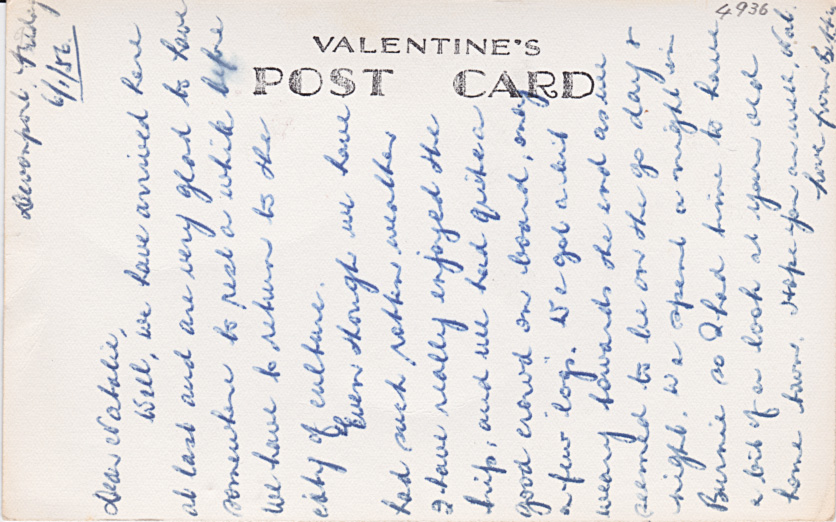 4936
VALENTINE'S
POST CARD
Devonport. Friday
6/1/56.
Dear Natalie,
Well, we have arrived here
at last and are very glad to have
somewhere to rest a while before
we have to return to the
city of culture.
Even though we have
had such rotten weather
I have really enjoyed the
trip; and we had quite a
good crowd on board, only
a few logs. We got a bit
weary towards the end as we
seemed to be on the go day &
night. We spent a night in
Burnie so I had time to have
a bit of a look at your old
home town. Hope you are well, Nat.
love from